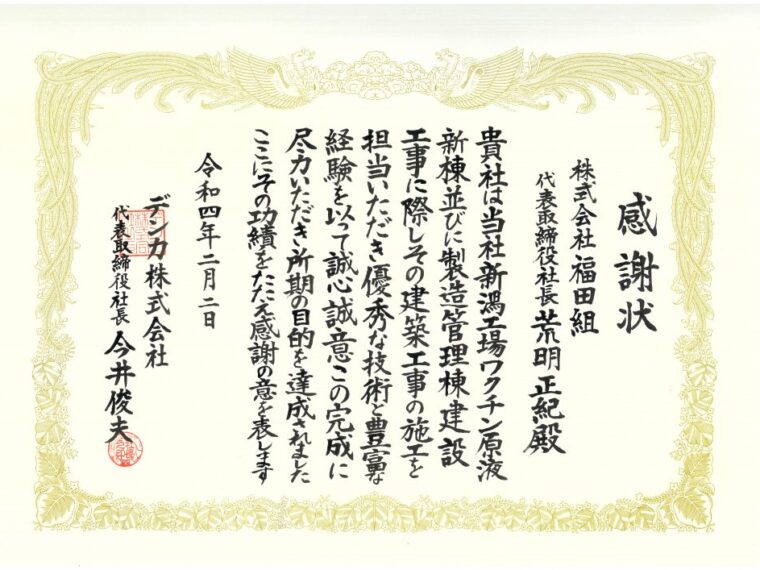 感謝状
株式会社 福田組
代表取締役社長 荒明正紀殿
貴社は当社新潟工場ワクチン原液
新棟並びに製造管理棟建設
工事に際しその建築工事の施工を
担当いただき優秀な技術と豊富な
経験を以って誠心誠意この完成に
尽力いただき所期の目的を達成されました
ここにその功績をたたえ感謝の意を表します
令和四年二月二日
デンカ株式会社
代表取締役社長 今井俊夫